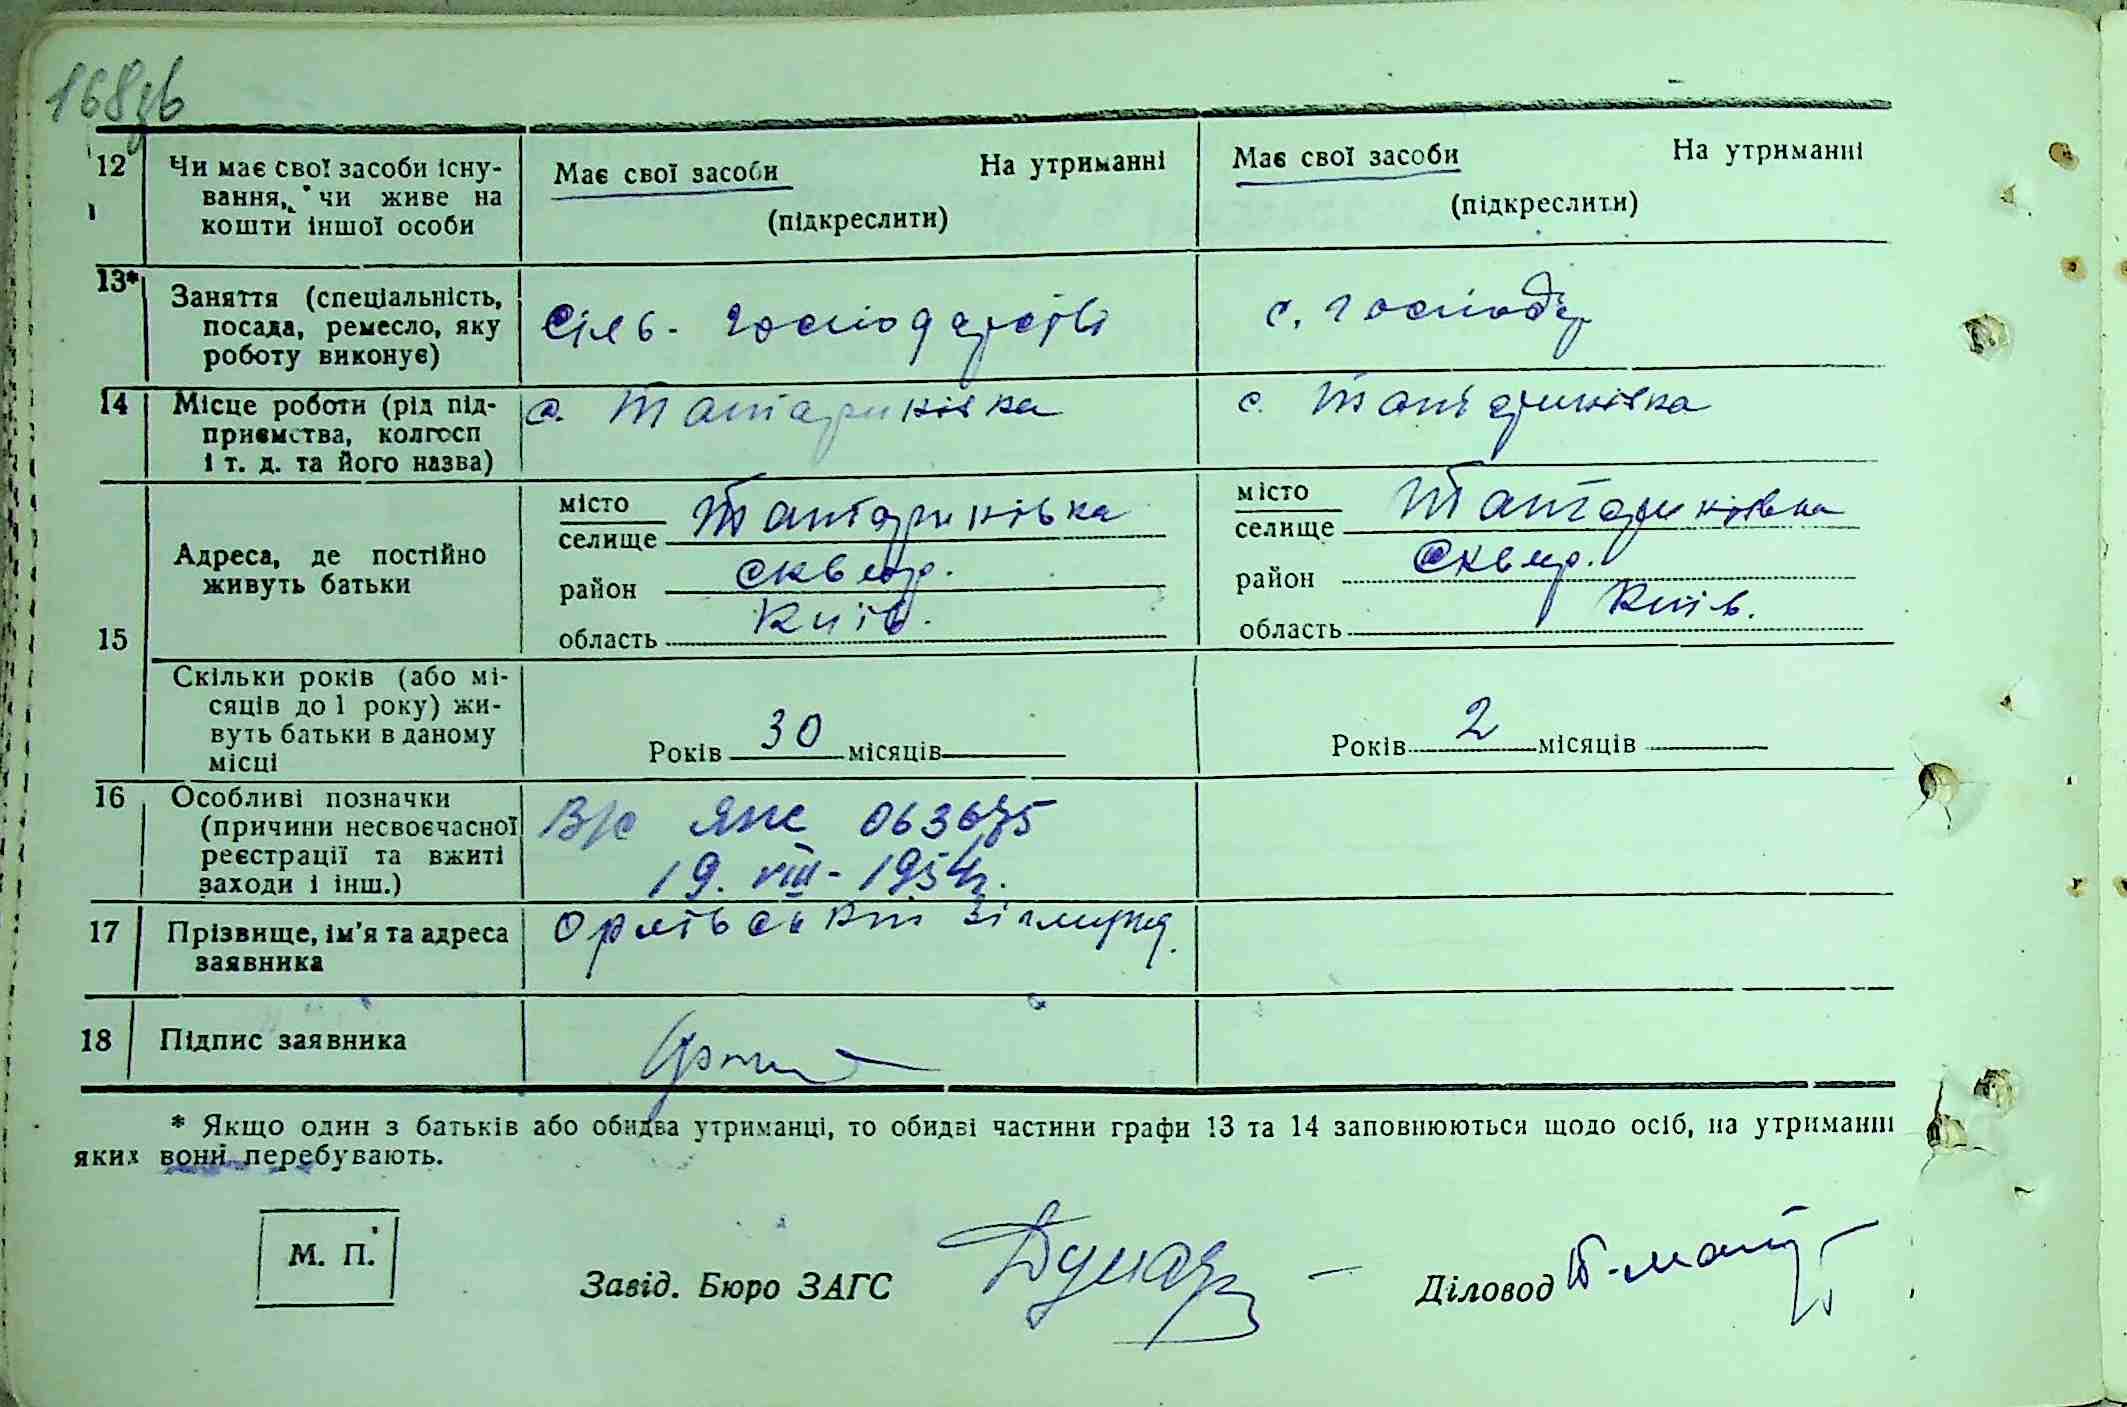 168зв
12 Чи має свої засоби існу-
вання, чи живе на
кошти іншої особи
Має свої засоби На утриманні
(підкреслити)
Має свої засоби На утриманні
(підкреслити)
13* Заняття (спеціальність,
посада, ремесло, яку
роботу виконує)
Сільь- господарстві
с. господар
14 Місце роботи (рід під-
приємства, колгосп
і т. д. та його назва)
с. Татаринівка
с. Татаринівка
15 Адреса, де постійно
живуть батьки
місто
селище Татаринівка
район Сквир.
область Київ.
місто
селище Татаринівка
район Сквир.
область Київ.
Скільки років (або мі-
сяців до 1 року) жи-
вуть батьки в даному
місці
Років 30 місяців
Років 2 місяців
16 Особливі позначки
(причини несвоєчасної
реєстрації та вжиті
заходи і інш.)
В/с 063675
19. VIII - 1954р.
17 Прізвище, ім'я та адреса
заявника
18 Підпис заявника
* Якщо один з батьків або обидва утриманці, то обидві частини графи 13 та 14 заповнюються щодо осіб, на утриманні
яких вони перебувають.
М. П.
Завід. Бюро ЗАГС
Діловод